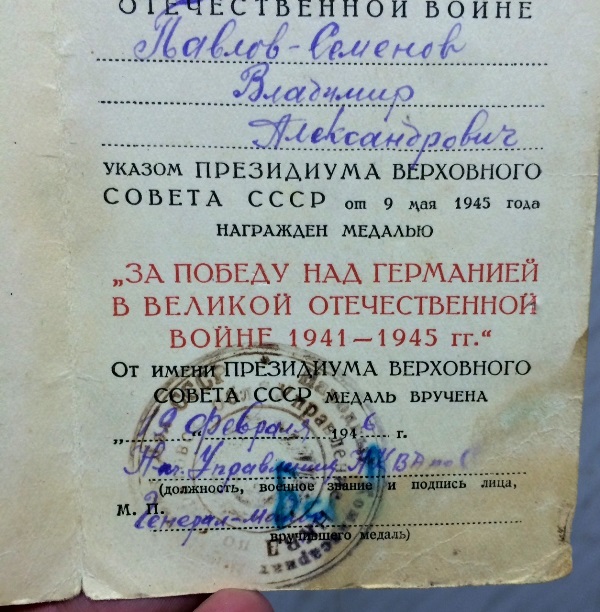 ОТЕЧЕСТВЕННОЙ ВОЙНЕ
Павлов-Семенов
Владимир
Александрович
УКАЗОМ ПРЕЗИДИУМА ВЕРХОВНОГО
СОВЕТА СССР от 9 мая 1945 года
НАГРАЖДЕН МЕДАЛЬЮ
„ЗА ПОБЕДУ НАД ГЕРМАНИЕЙ
В ВЕЛИКОЙ ОТЕЧЕСТВЕННОЙ
ВОЙНЕ 1941—1945 гг.“
От имени ПРЕЗИДИУМА ВЕРХОВНОГО
СОВЕТА СССР МЕДАЛЬ ВРУЧЕНА
„19“ февраля 1946 г.
Нач. Управления НКВД
(должность, военное звание и подпись лица,
М. П.
Генерал-майор
вручившего медаль)